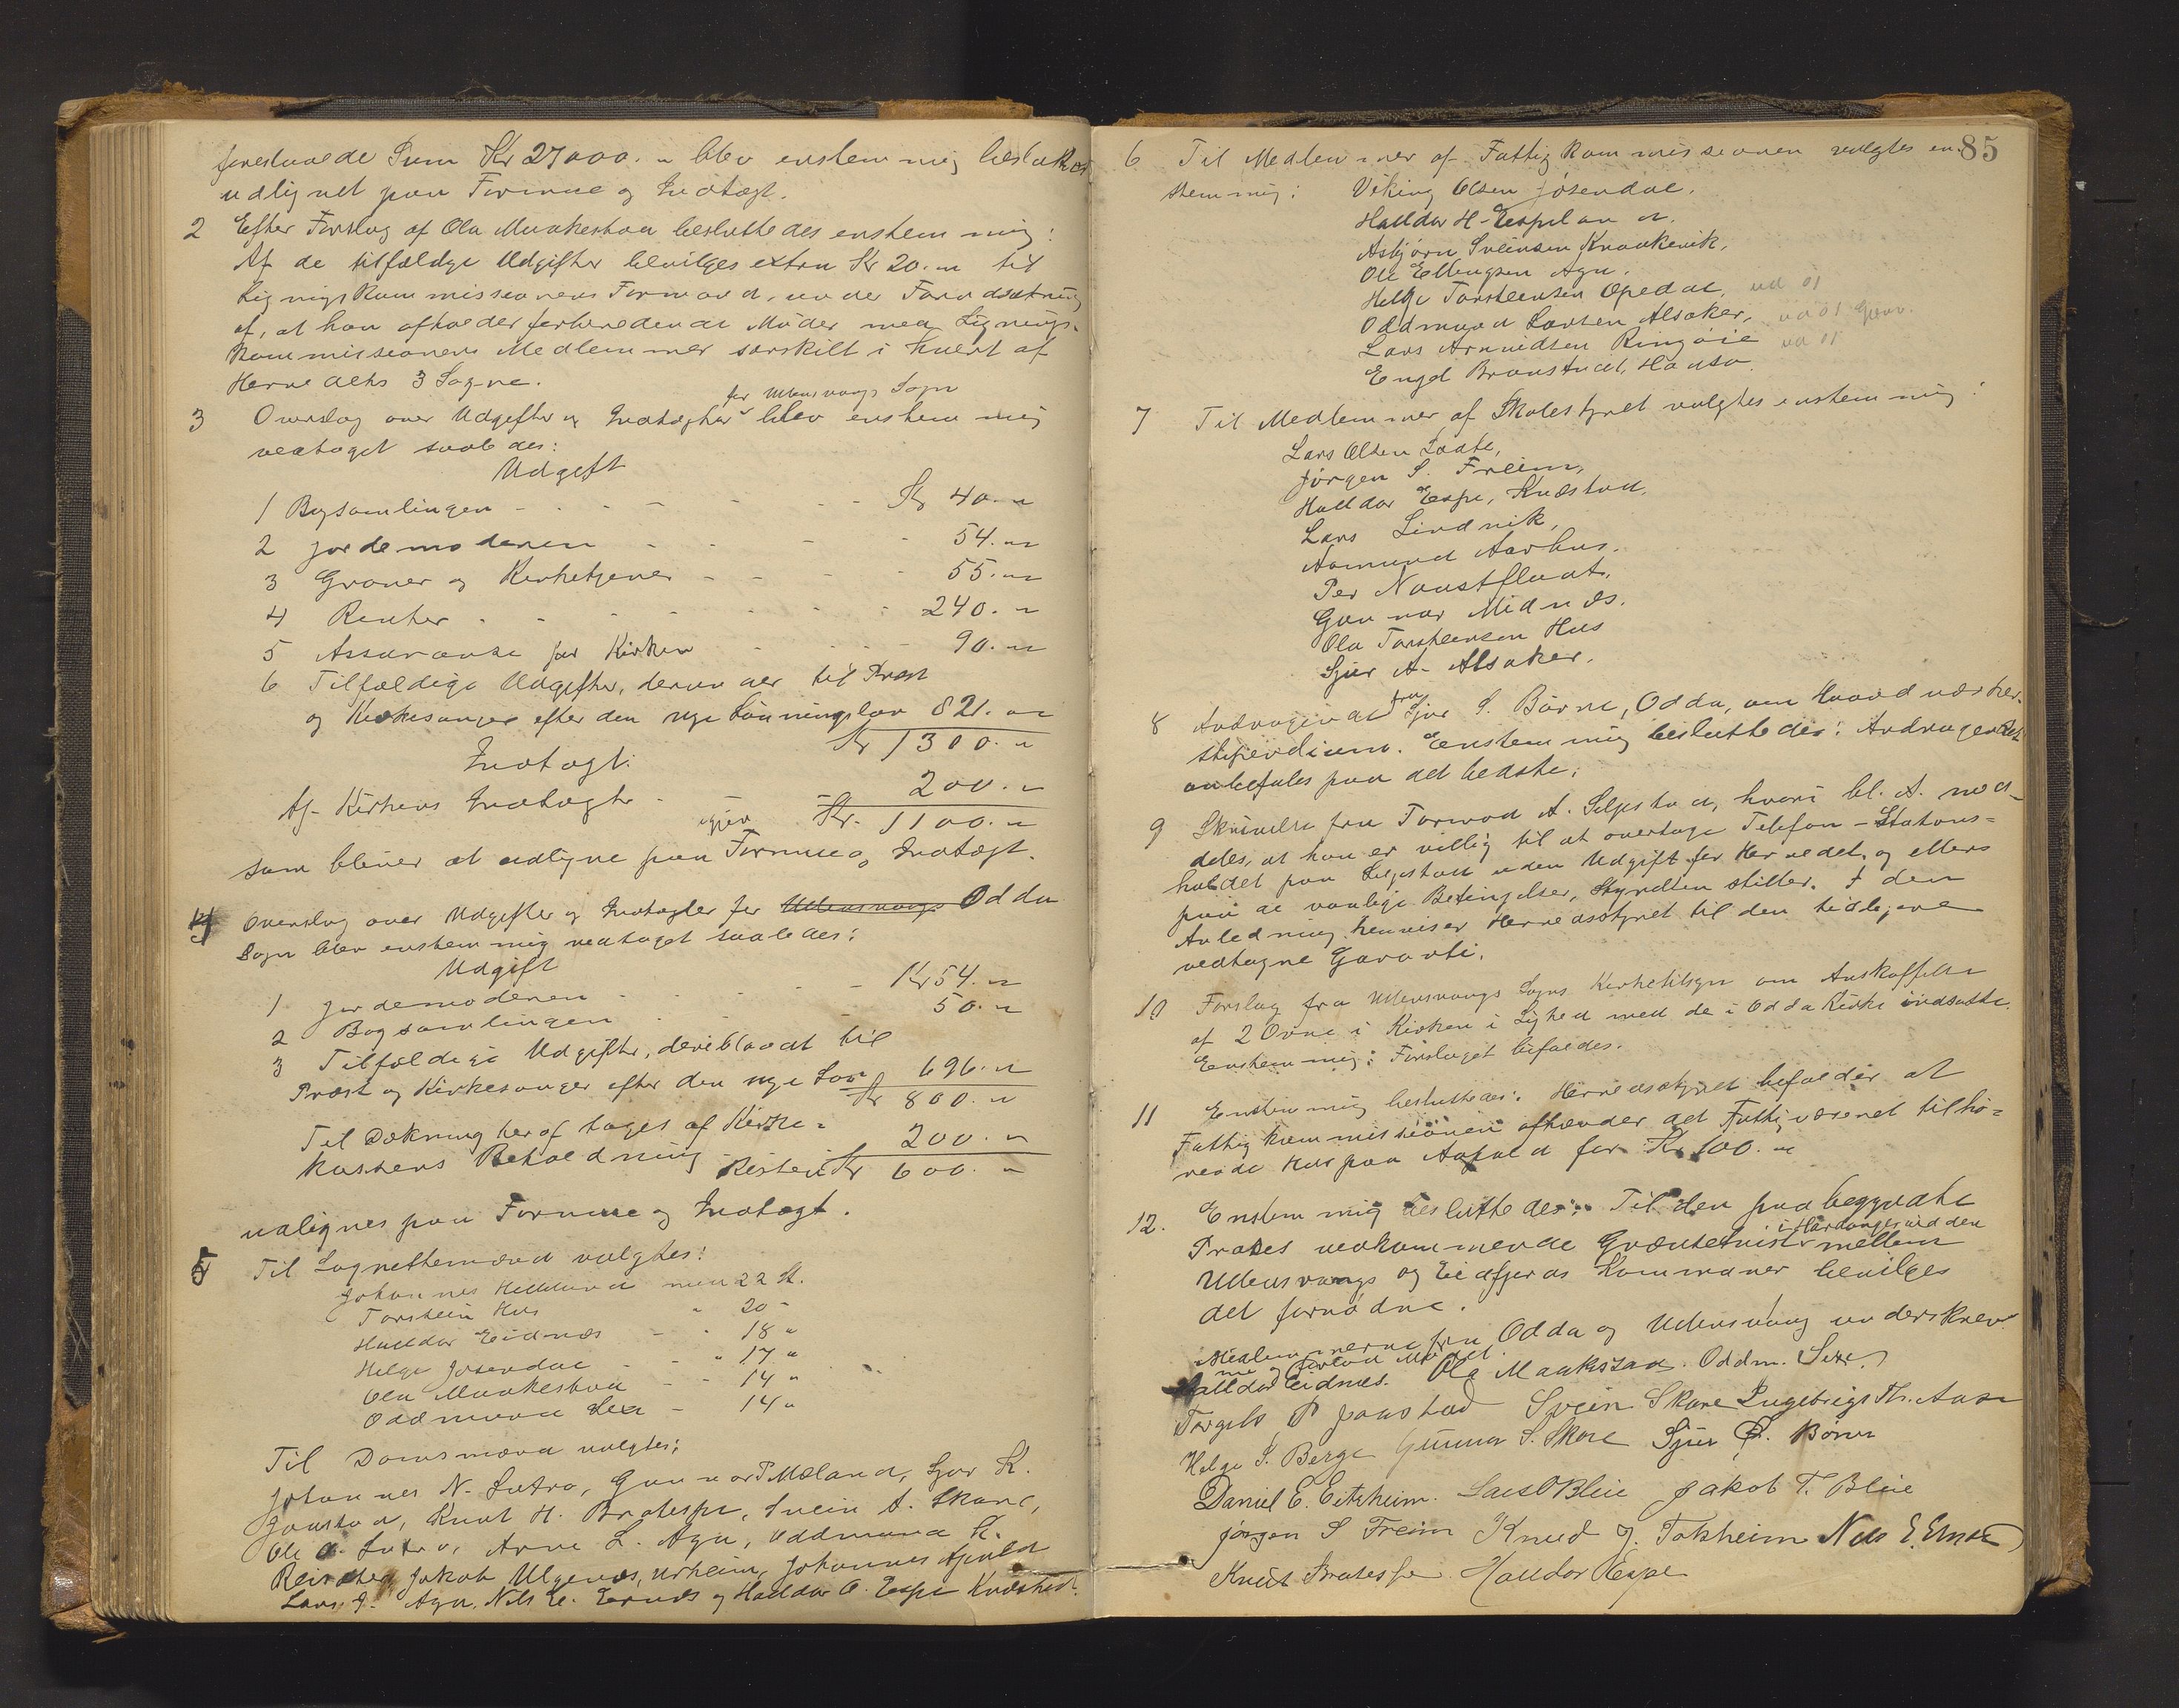 foreslaaede Sum Kr 27000. " blev enstemmig besluttet
udlignet paa Formue og Indtægt.
2 Efter Forslag af Ola Maakestad besluttedes enstemmig:
Af de tilfældige Udgifter bevilges extra Kr 20. " til
Ligningskommissionens Formand, under Forudsætning
af, at han afholder forberedende Møder med Lignings-
kommissionens Medlemmer særskilt i hvert af
Herredets 3 Sogne.
for Ullensvangs Sogn
3 Overslag over Udgifter og Indtægter blev enstemmig
vedtaget saaledes:
Udgift
1 Bogsamlingen - - - - Kr 40. "
2 Jordemoderen - - - - 54. "
3 Graver og Kirketjener - - - - 55. "
4 Renter - - - - 240. "
5 Assurance for Kirken - - - 90. "
6 Tilfældige Udgifter, derunder til Præst
og Kirkesanger efter den nye Lønningslov 821. "
Kr 1300. "
Indtægt:
Af Kirkens Indtægter - - - 200. "
igjen Kr. 1100. "
som bliver at udligne paa Formue og Indtægt.
4 Overslag over Udgifter og Indtægter for Ullensvangs Odda
Sogn blev enstemmig vedtaget saaledes:
Udgift
1 Jordemoderen - - - - Kr 54. "
2 Bogsamlingen - - - 50. "
3 Tilfældige Udgifter, deriblandt til
Præst og Kirkesanger efter den nye Lov 696. "
Kr 800. "
Til Dækning heraf tages af Kirke-
kassens Beholdning 200. "
Resten Kr 600. "
udlignes paa Formue og Indtægt.
5 Til Lagrettemænd valgtes:
Johannes Helleland med 22 St.
Torstein Hus " 20 "
Halldor Eidnes - " 18 "
Helge Jøsendal - - " 17 "
Ola Maakestad - - 14 "
Oddmund - 14 "
Til Domsmænd valgtes:
Johannes N. Lutro, Gunnar P Mæland, Sjur K.
Jaastad, Knut H. Bratespe, Svein A. Skare,
Ole O. Lutro, Arne L. Aga, Oddmund K.
Reisæter, Jakob Ulgenæs, Urheim, Johannes Apold
Lars J. Aga, Nils E. Ernæs og Halldor O. Espe Knæstad.
85
6 Til Medlemmer af Fattigkommissionen valgtes en-
stemmig: Viking Olsen Jøsendal.
Halldor H. Espeland.
Asbjørn Sveinsen Kraakevik.
Ole Ellingsen Aga.
Helge Torsteinsen Opedal. ud 01
Oddmund Larsen Alsaker. ud 01
Lars Arnvidsen Ringøie ud 01
Engel Braastad, Hauso.
7 Til Medlemmer af Skolestyret valgtes enstemmig:
Lars Olsen Laate,
Jørgen S. Freim,
Halldor Espe, Knæstad.
Lars Lindvik,
Aamund Aarhus.
Per Naustflaat.
Gunnar Midnæs.
Ola Torsteinsen Hus
Sjur A. Alsaker.
8 Andragende fra Sjur S. Børve, Odda, om Haandværker-
stipendium. Enstemmig besluttedes: Andragendet
anbefales paa det bedste.
9 Skrivelse fra Tormod A. Seljestad, hvori bl. A. med-
deles, at han er villig til at overtage Telefon-Stations-
holdet paa Seljestad uden Udgift for Herredet og ellers
paa de vanlige Betingelser, Styrelsen stiller. I den
Anledning henviser Herredsstyret til den tidligere
vedtagne Garanti.
10 Forslag fra Ullensvangs Sogns Kirketilsyn om Anskaffelse
af 2 Ovne i Kirken i Lighed med de i Odda Kirke indsatte.
Enstemmig: Forslaget bifaldes.
11 Enstemmig besluttedes: Herredsstyret bifalder at
Fattigkommissionen afhænder det Fattigvæsenet tilhø-
rende Hus paa Apold for Kr 100. "
12. Enstemmig besluttedes: Til den paabegyndte
i Hardangervidden
Proces vedkommende Grændsetvist mellem
Ullensvangs og Eidfjords Kommuner bevilges
det fornødne.
Medlemmerne fra Odda og Ullensvang underskrev
nu og forlod Mødet.
Halldor Eidnes. Ola Maakestad. Oddm. Sexe
Torgils P Jaastad Svein Skare Ingebrigt Th. Aase
Helge S. Berge Gunnar S. Skare Sjur S. Børve
Daniel E. Eitrheim. Lars O Bleie Jakob T. Bleie
Jørgen S Freim Knud J. Tokheim Nils E. Ernæs
Knut Bratespe. Halldor Espe